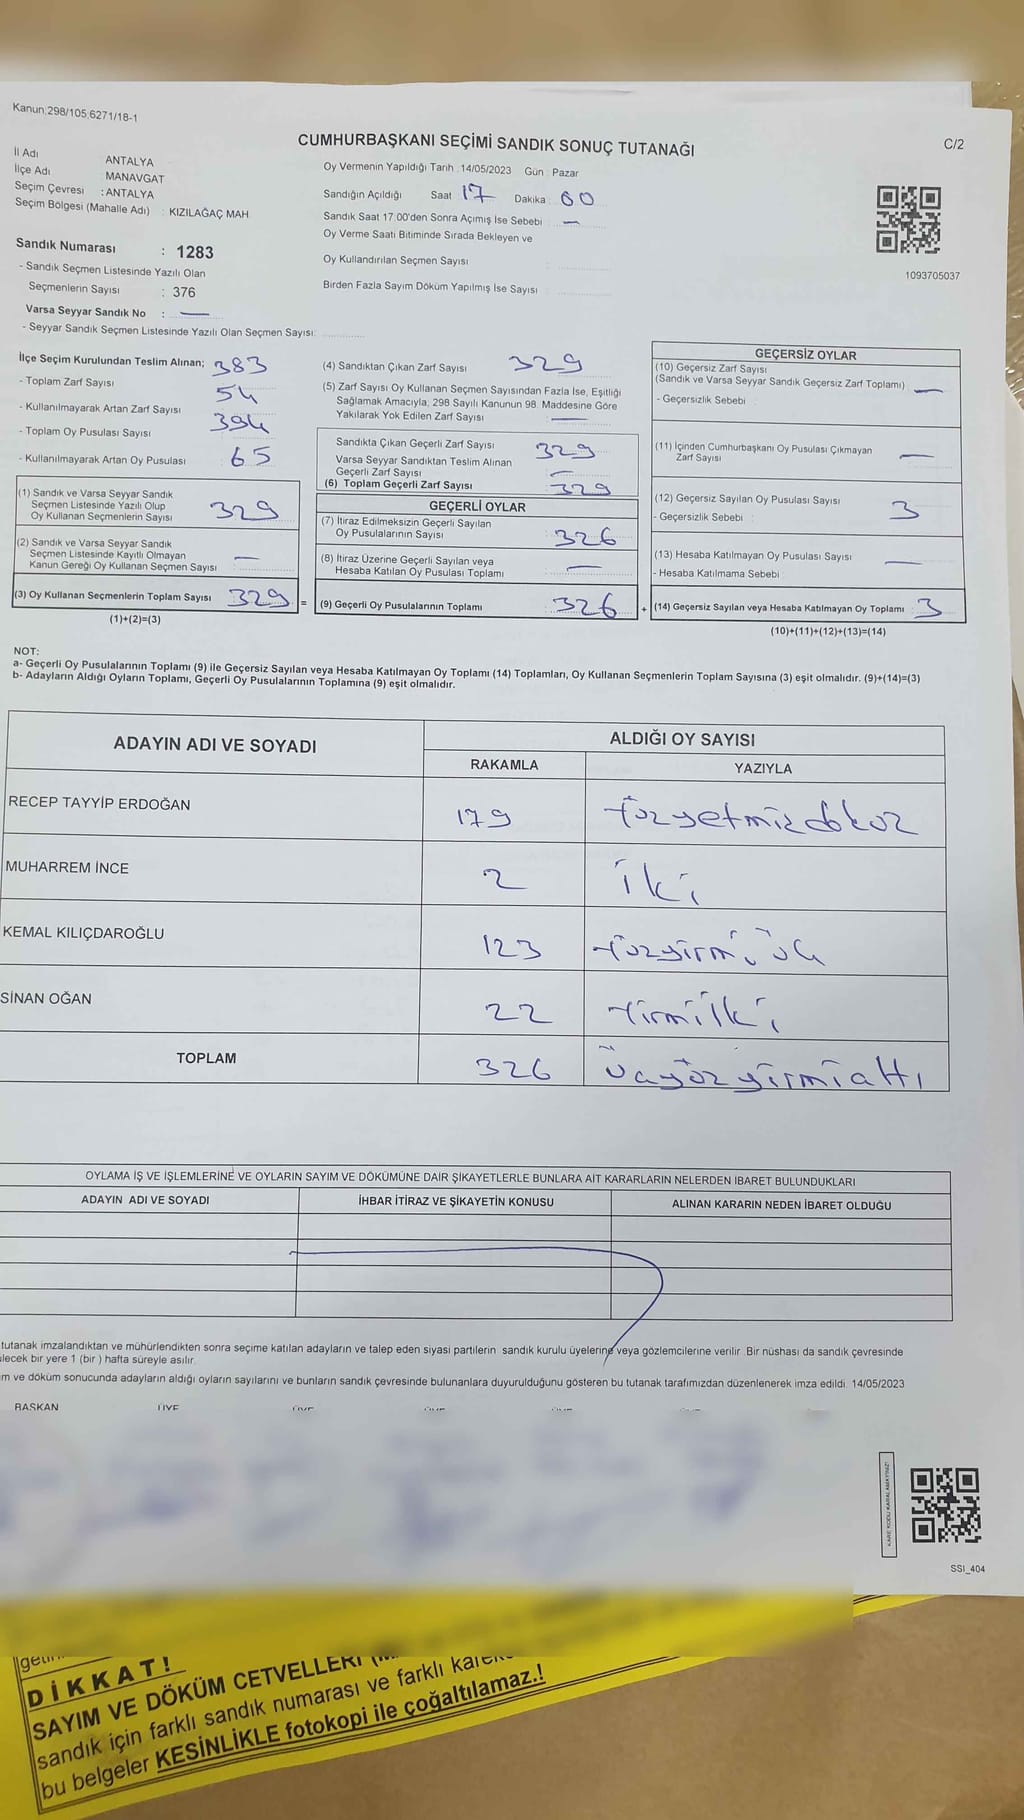 Kanun:298/105,6271/18-1
CUMHURBAŞKANI SEÇİMİ SANDIK SONUÇ TUTANAĞI
C/2
İl Adı ANTALYA
İlçe Adı MANAVGAT
Seçim Çevresi : ANTALYA
Seçim Bölgesi (Mahalle Adı) : KIZILAĞAÇ MAH.
Sandık Numarası : 1283
- Sandık Seçmen Listesinde Yazılı Olan
Seçmenlerin Sayısı : 376
Varsa Seyyar Sandık No : —
- Seyyar Sandık Seçmen Listesinde Yazılı Olan Seçmen Sayısı:
Oy Vermenin Yapıldığı Tarih : 14/05/2023 Gün : Pazar
Sandığın Açıldığı Saat 17 Dakika : 00
Sandık Saat 17:00'den Sonra Açımış İse Sebebi : —
Oy Verme Saati Bitiminde Sırada Bekleyen ve
Oy Kullandırılan Seçmen Sayısı :
Birden Fazla Sayım Döküm Yapılmış İse Sayısı :
1093705037
İlçe Seçim Kurulundan Teslim Alınan; 383
- Toplam Zarf Sayısı 54
- Kullanılmayarak Artan Zarf Sayısı 394
- Toplam Oy Pusulası Sayısı
- Kullanılmayarak Artan Oy Pusulası 65
(1) Sandık ve Varsa Seyyar Sandık
Seçmen Listesinde Yazılı Olup
Oy Kullanan Seçmenlerin Sayısı 329
(2) Sandık ve Varsa Seyyar Sandık
Seçmen Listesinde Kayıtlı Olmayan
Kanun Gereği Oy Kullanan Seçmen Sayısı —
(3) Oy Kullanan Seçmenlerin Toplam Sayısı 329 =
(1)+(2)=(3)
(4) Sandıktan Çıkan Zarf Sayısı 329
(5) Zarf Sayısı Oy Kullanan Seçmen Sayısından Fazla İse, Eşitliği
Sağlamak Amacıyla, 298 Sayılı Kanunun 98. Maddesine Göre
Yakılarak Yok Edilen Zarf Sayısı —
Sandıkta Çıkan Geçerli Zarf Sayısı 329
Varsa Seyyar Sandıktan Teslim Alınan
Geçerli Zarf Sayısı —
(6) Toplam Geçerli Zarf Sayısı 329
GEÇERLİ OYLAR
(7) İtiraz Edilmeksizin Geçerli Sayılan
Oy Pusulalarının Sayısı 326
(8) İtiraz Üzerine Geçerli Sayılan veya
Hesaba Katılan Oy Pusulası Toplamı —
(9) Geçerli Oy Pusulalarının Toplamı : 326 +
GEÇERSİZ OYLAR
(10) Geçersiz Zarf Sayısı
(Sandık ve Varsa Seyyar Sandık Geçersiz Zarf Toplamı) —
- Geçersizlik Sebebi :
(11) İçinden Cumhurbaşkanı Oy Pusulası Çıkmayan
Zarf Sayısı —
(12) Geçersiz Sayılan Oy Pusulası Sayısı 3
- Geçersizlik Sebebi :
(13) Hesaba Katılmayan Oy Pusulası Sayısı —
- Hesaba Katılmama Sebebi :
(14) Geçersiz Sayılan veya Hesaba Katılmayan Oy Toplamı : 3
(10)+(11)+(12)+(13)=(14)
NOT:
a- Geçerli Oy Pusulalarının Toplamı (9) ile Geçersiz Sayılan veya Hesaba Katılmayan Oy Toplamı (14) Toplamları, Oy Kullanan Seçmenlerin Toplam Sayısına (3) eşit olmalıdır. (9)+(14)=(3)
b- Adayların Aldığı Oyların Toplamı, Geçerli Oy Pusulalarının Toplamına (9) eşit olmalıdır.
ADAYIN ADI VE SOYADI ALDIĞI OY SAYISI
RAKAMLA YAZIYLA
RECEP TAYYİP ERDOĞAN 179 Yüzyetmizdokuz
MUHARREM İNCE 2 iki
KEMAL KILIÇDAROĞLU 123 Yüzyirmi üç
SİNAN OĞAN 22 Yirmiiki
TOPLAM 326 üçyüzyirmialtı
OYLAMA İŞ VE İŞLEMLERİNE VE OYLARIN SAYIM VE DÖKÜMÜNE DAİR ŞİKAYETLERLE BUNLARA AİT KARARLARIN NELERDEN İBARET BULUNDUKLARI
ADAYIN ADI VE SOYADI İHBAR İTİRAZ VE ŞİKAYETİN KONUSU ALINAN KARARIN NEDEN İBARET OLDUĞU
tutanak imzalandıktan ve mühürlendikten sonra seçime katılan adayların ve talep eden siyasi partilerin sandık kurulu üyelerine veya gözlemcilerine verilir. Bir nüshası da sandık çevresinde
ilecek bir yere 1 (bir ) hafta süreyle asılır.
m ve döküm sonucunda adayların aldığı oyların sayılarını ve bunların sandık çevresinde bulunanlara duyurulduğunu gösteren bu tutanak tarafımızdan düzenlenerek imza edildi. 14/05/2023
BAŞKAN ÜYE ÜYE ÜYE ÜYE ÜYE
KARE KODU KARALAMAYINIZ!
SSI_404
DİKKAT!
SAYIM VE DÖKÜM CETVELLERİ
sandık için farklı sandık numarası ve farklı
bu belgeler KESİNLİKLE fotokopi ile çoğaltılamaz.!